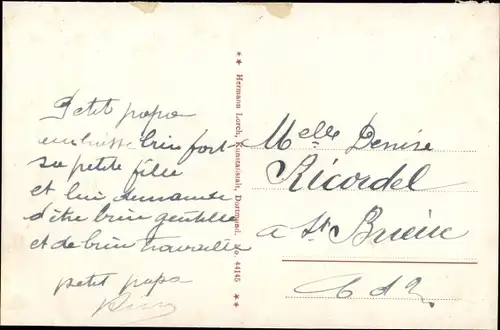 Petit papa
embrasse bien fort
sa petite fille
et lui demande
d'être bien gentille
et de bien travailler
petit papa
** Hermann Lorch, Kunstanstalt, Dortmund. No. 44145 **
Melle Denise
Ricordel
a St Brieuc
C d N